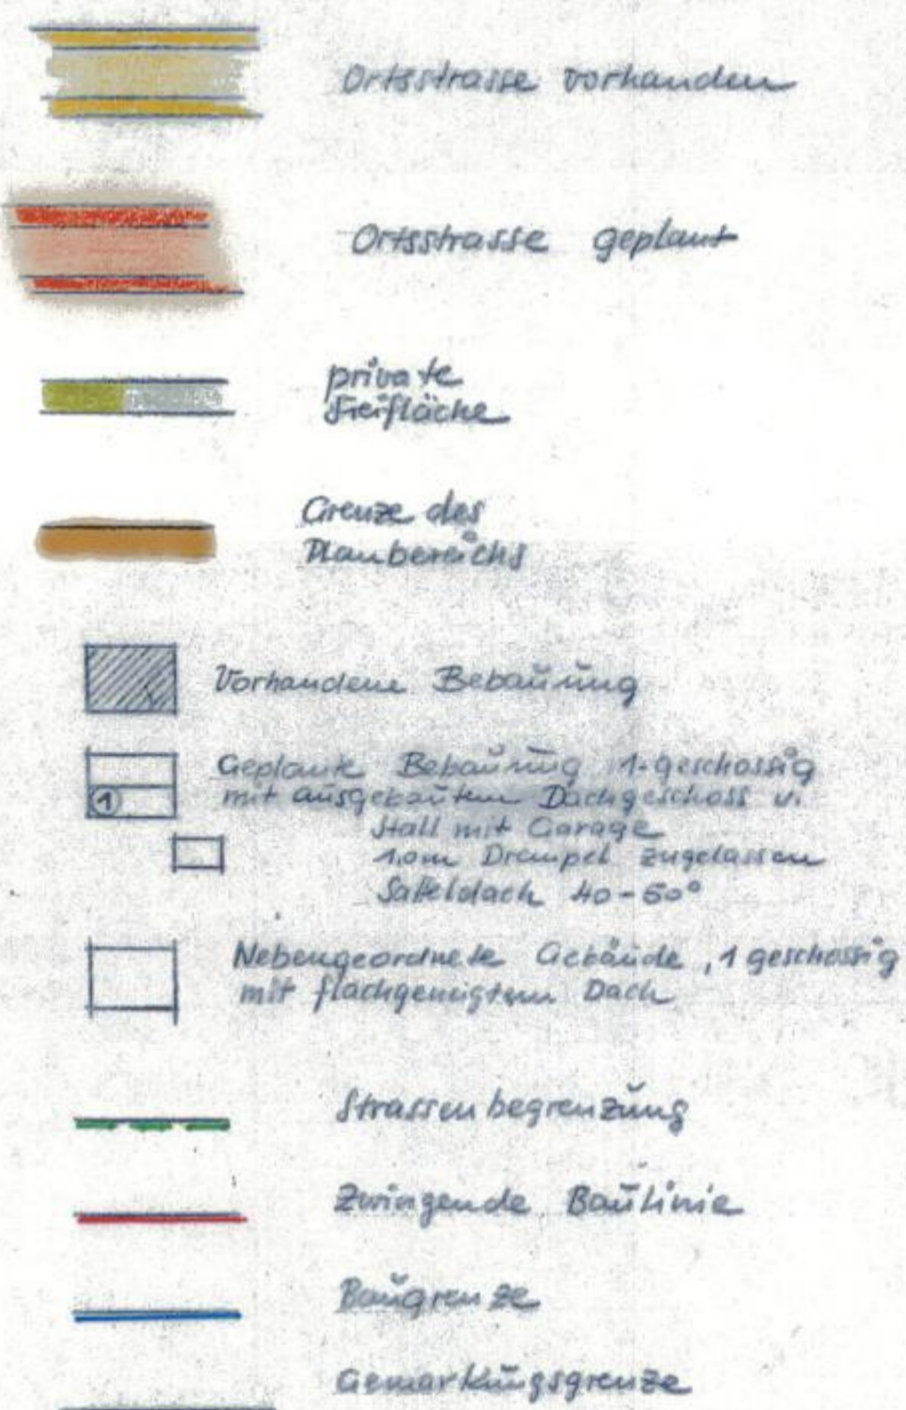 Ortsstrasse vorhanden
Ortsstrasse geplant
private
Freifläche
Grenze des
Planbereichs
Vorhandene Bebauung
Geplante Bebauung 1-geschossig
mit ausgebautem Dachgeschoss u.
1
Stall mit Garage
1.0m Drempel zugelassen
Satteldach 40-50°
Nebengeordnete Gebäude, 1 geschossig
mit flachgeneigtem Dach
Strassenbegrenzung
Zwingende Baulinie
Baugrenze
Gemarkungsgrenze